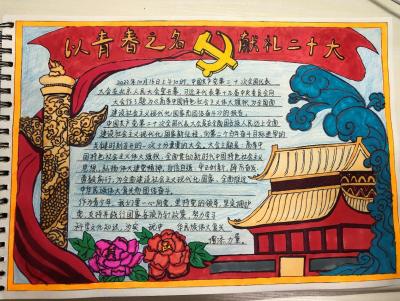 以青春之名 献礼二十大
2022年10月16日上午10时，中国共产党第二十次全国代表
大会在北京人民大会堂开幕。习近平代表第十九届中央委员会向
大会作了题为《高举中国特色社会主义伟大旗帜 为全面
建设社会主义现代化国家而团结奋斗》的报告。
中国共产党第二十次全国代表大会，是在全党全国各族人民迈上全面
建设社会主义现代化国家新征程、向第二个百年奋斗目标进军的
关键时刻召开的一次十分重要的大会。大会主题是：高举中
国特色社会主义伟大旗帜，全面贯彻新时代中国特色社会主义
思想，弘扬伟大建党精神，自信自强、守正创新，踔厉奋发、
勇毅前行，为全面建设社会主义现代化国家、全面推进
中华民族伟大复兴而团结奋斗。
作为青少年，我们要一心向党，坚持党的领导，坚定拥护
党，支持并践行国家各项方针政策，努力学习
科学文化知识，为实现中华民族伟大复兴
力量。